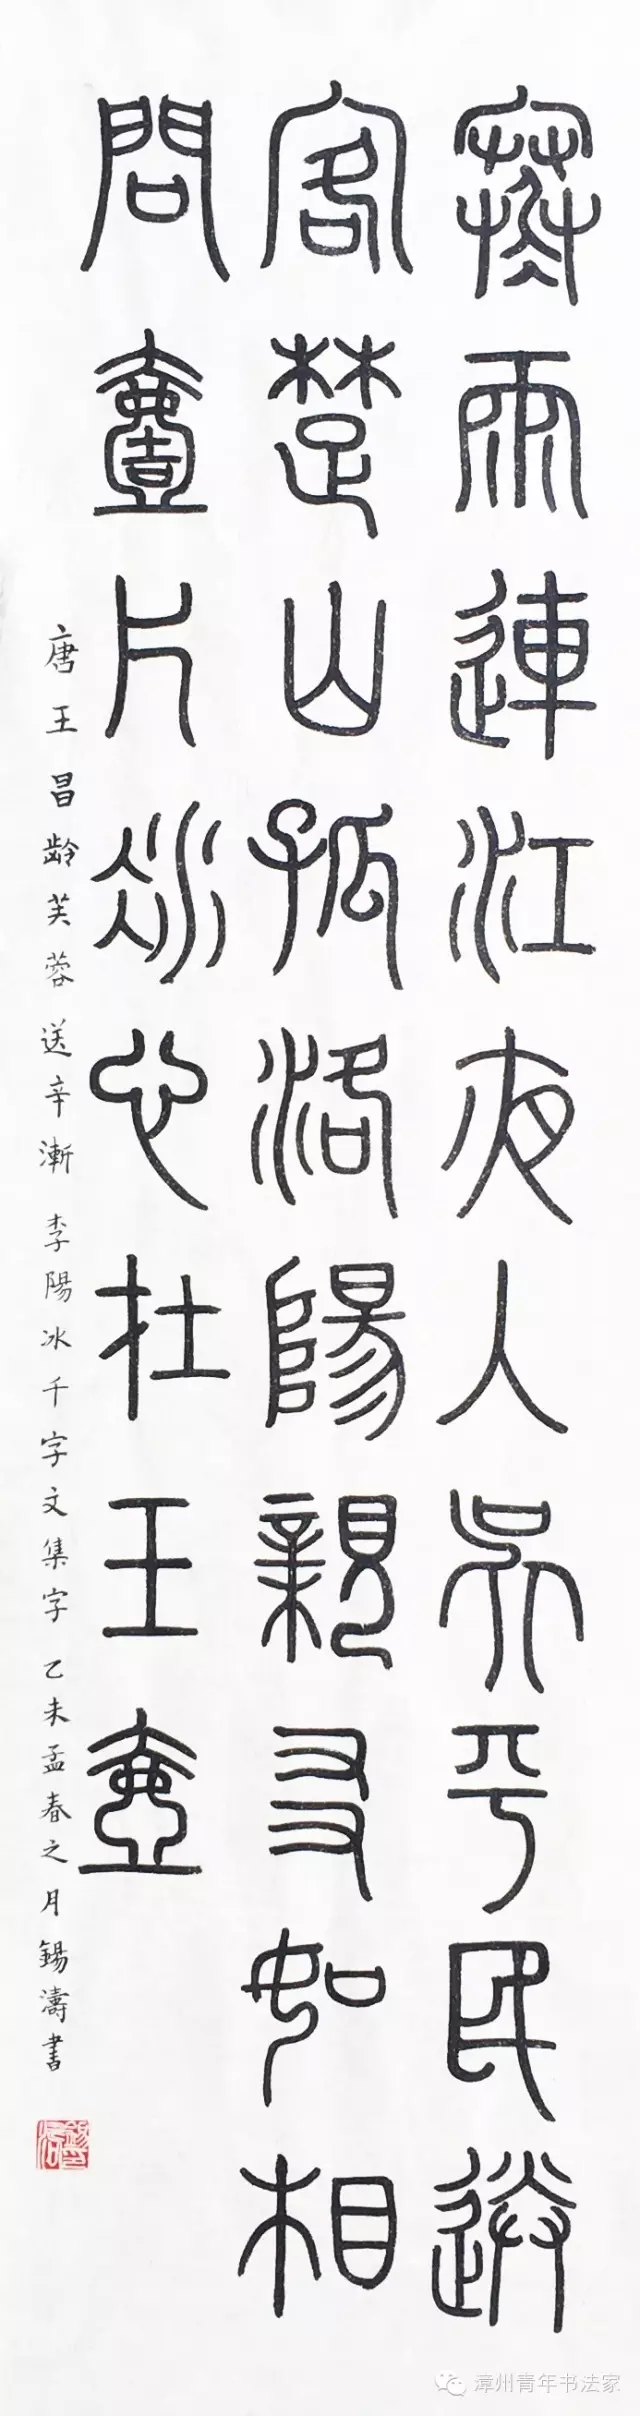 寒雨連江夜入吳平民送
客楚山孤洛陽親友如相
問壹片冰心在玉壺
唐王昌齡芙蓉送辛漸 李陽冰千字文集字 乙未孟春之月錫濤書
漳州青年书法家